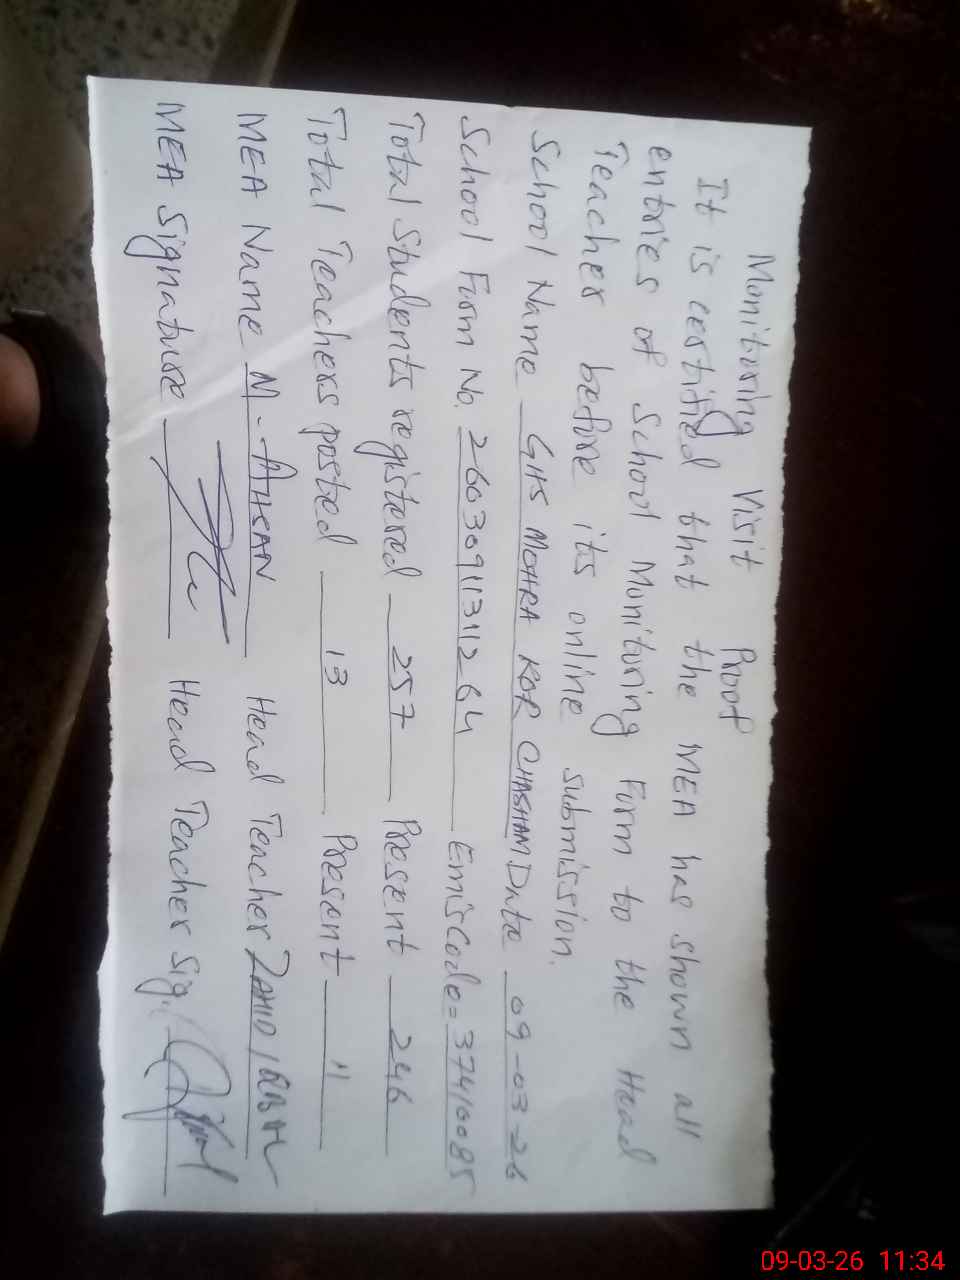 Monitoring Visit Proof
It is certified that the MEA has shown all
entries of School Monitoring Form to the Head
Teacher before its online submission.
School Name GHS MOHRA KOR CHASHAM Date 09-03-26
School Form No. 2603091131264 Emis Code = 37410085
Total Students registered 257 Present 246
Total Teachers posted 13 Present 11
MEA Name M. AHSAN Head Teacher ZAHID IQBAL
MEA Signature Head Teacher Sig.
09-03-26 11:34